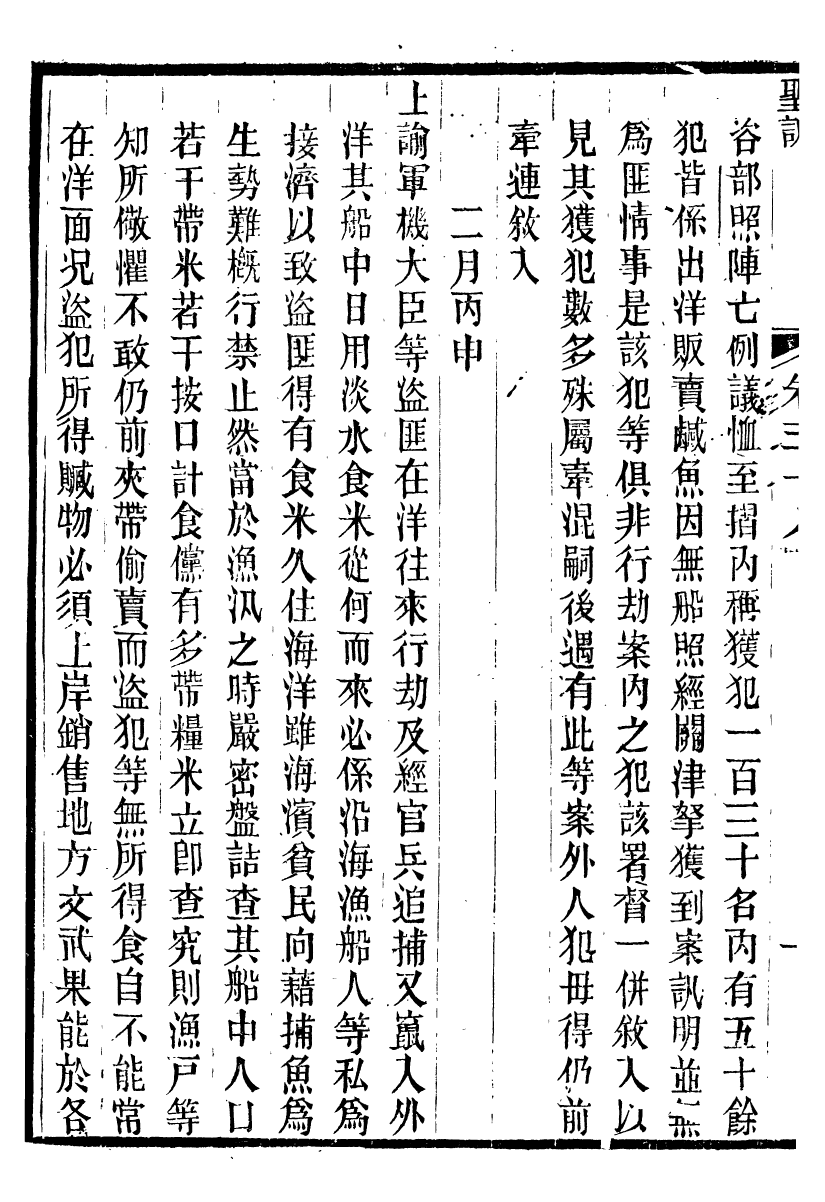 聖訓
咨部照陣亡例議恤至摺內稱獲犯一百三十名內有五十餘
犯皆係出洋販賣鹹魚因無船照經關津拏獲到案訊明並無
為匪情事是該犯等俱非行劫案內之犯該署督一併敘入以
見其獲犯數多殊屬牽混嗣後遇有此等案外人犯毋得仍前
牽連敘入
二月丙申
上諭軍機大臣等盜匪在洋往來行劫及經官兵追捕又竄入外
洋其船中日用淡水食米從何而來必係沿海漁船人等私為
接濟以致盜匪得有食米久住海洋雖海濱貧民向藉捕魚為
生勢難概行禁止然當於漁汛之時嚴密盤詰查其船中人口
若干帶米若干按口計食儻有多帶糧米立即查究則漁戶等
知所儆懼不敢仍前夾帶偷賣而盜犯等無所得食自不能常
在洋面況盜犯所得贓物必須上岸銷售地方文武果能於各